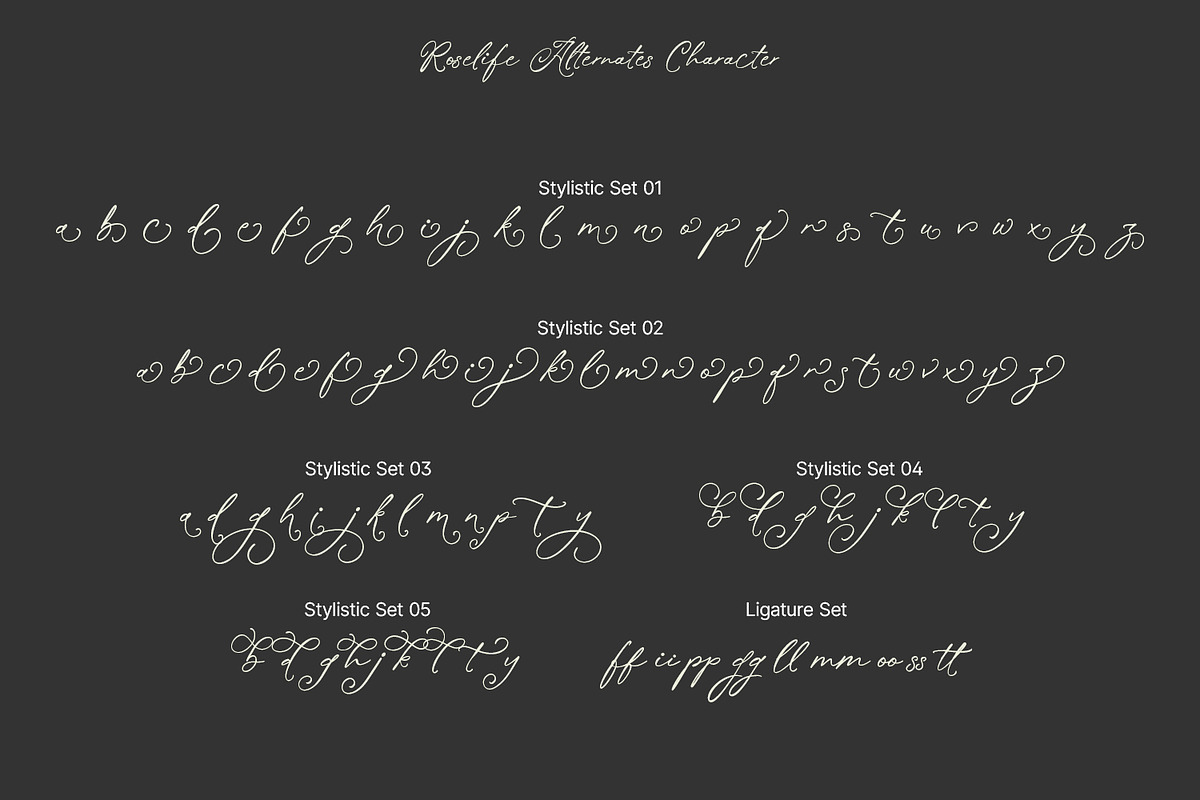 Roselife Alternates Character
Stylistic Set 01
a b c d e f g h i j k l m n o p q r s t u v w x y z
Stylistic Set 02
a b c d e f g h i j k l m n o p q r s t u v x y z
Stylistic Set 03
a d g h i j k l m n p t y
Stylistic Set 04
b d g h j k l t y
Stylistic Set 05
b d g h j k l t y
Ligature Set
ff ii pp gg ll mm oo ss tt